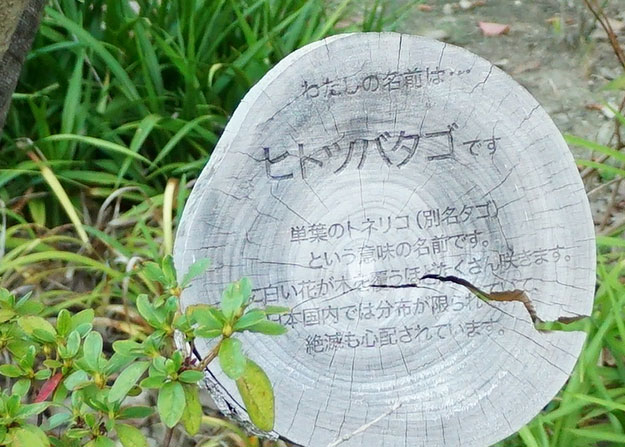 わたしの名前は…
ヒトツバタゴです
単葉のトネリコ(別名タゴ)
という意味の名前です。
白い花が木を覆うほどたくさん咲きます。
本国内では分布が限られてい
絶滅も心配されています。